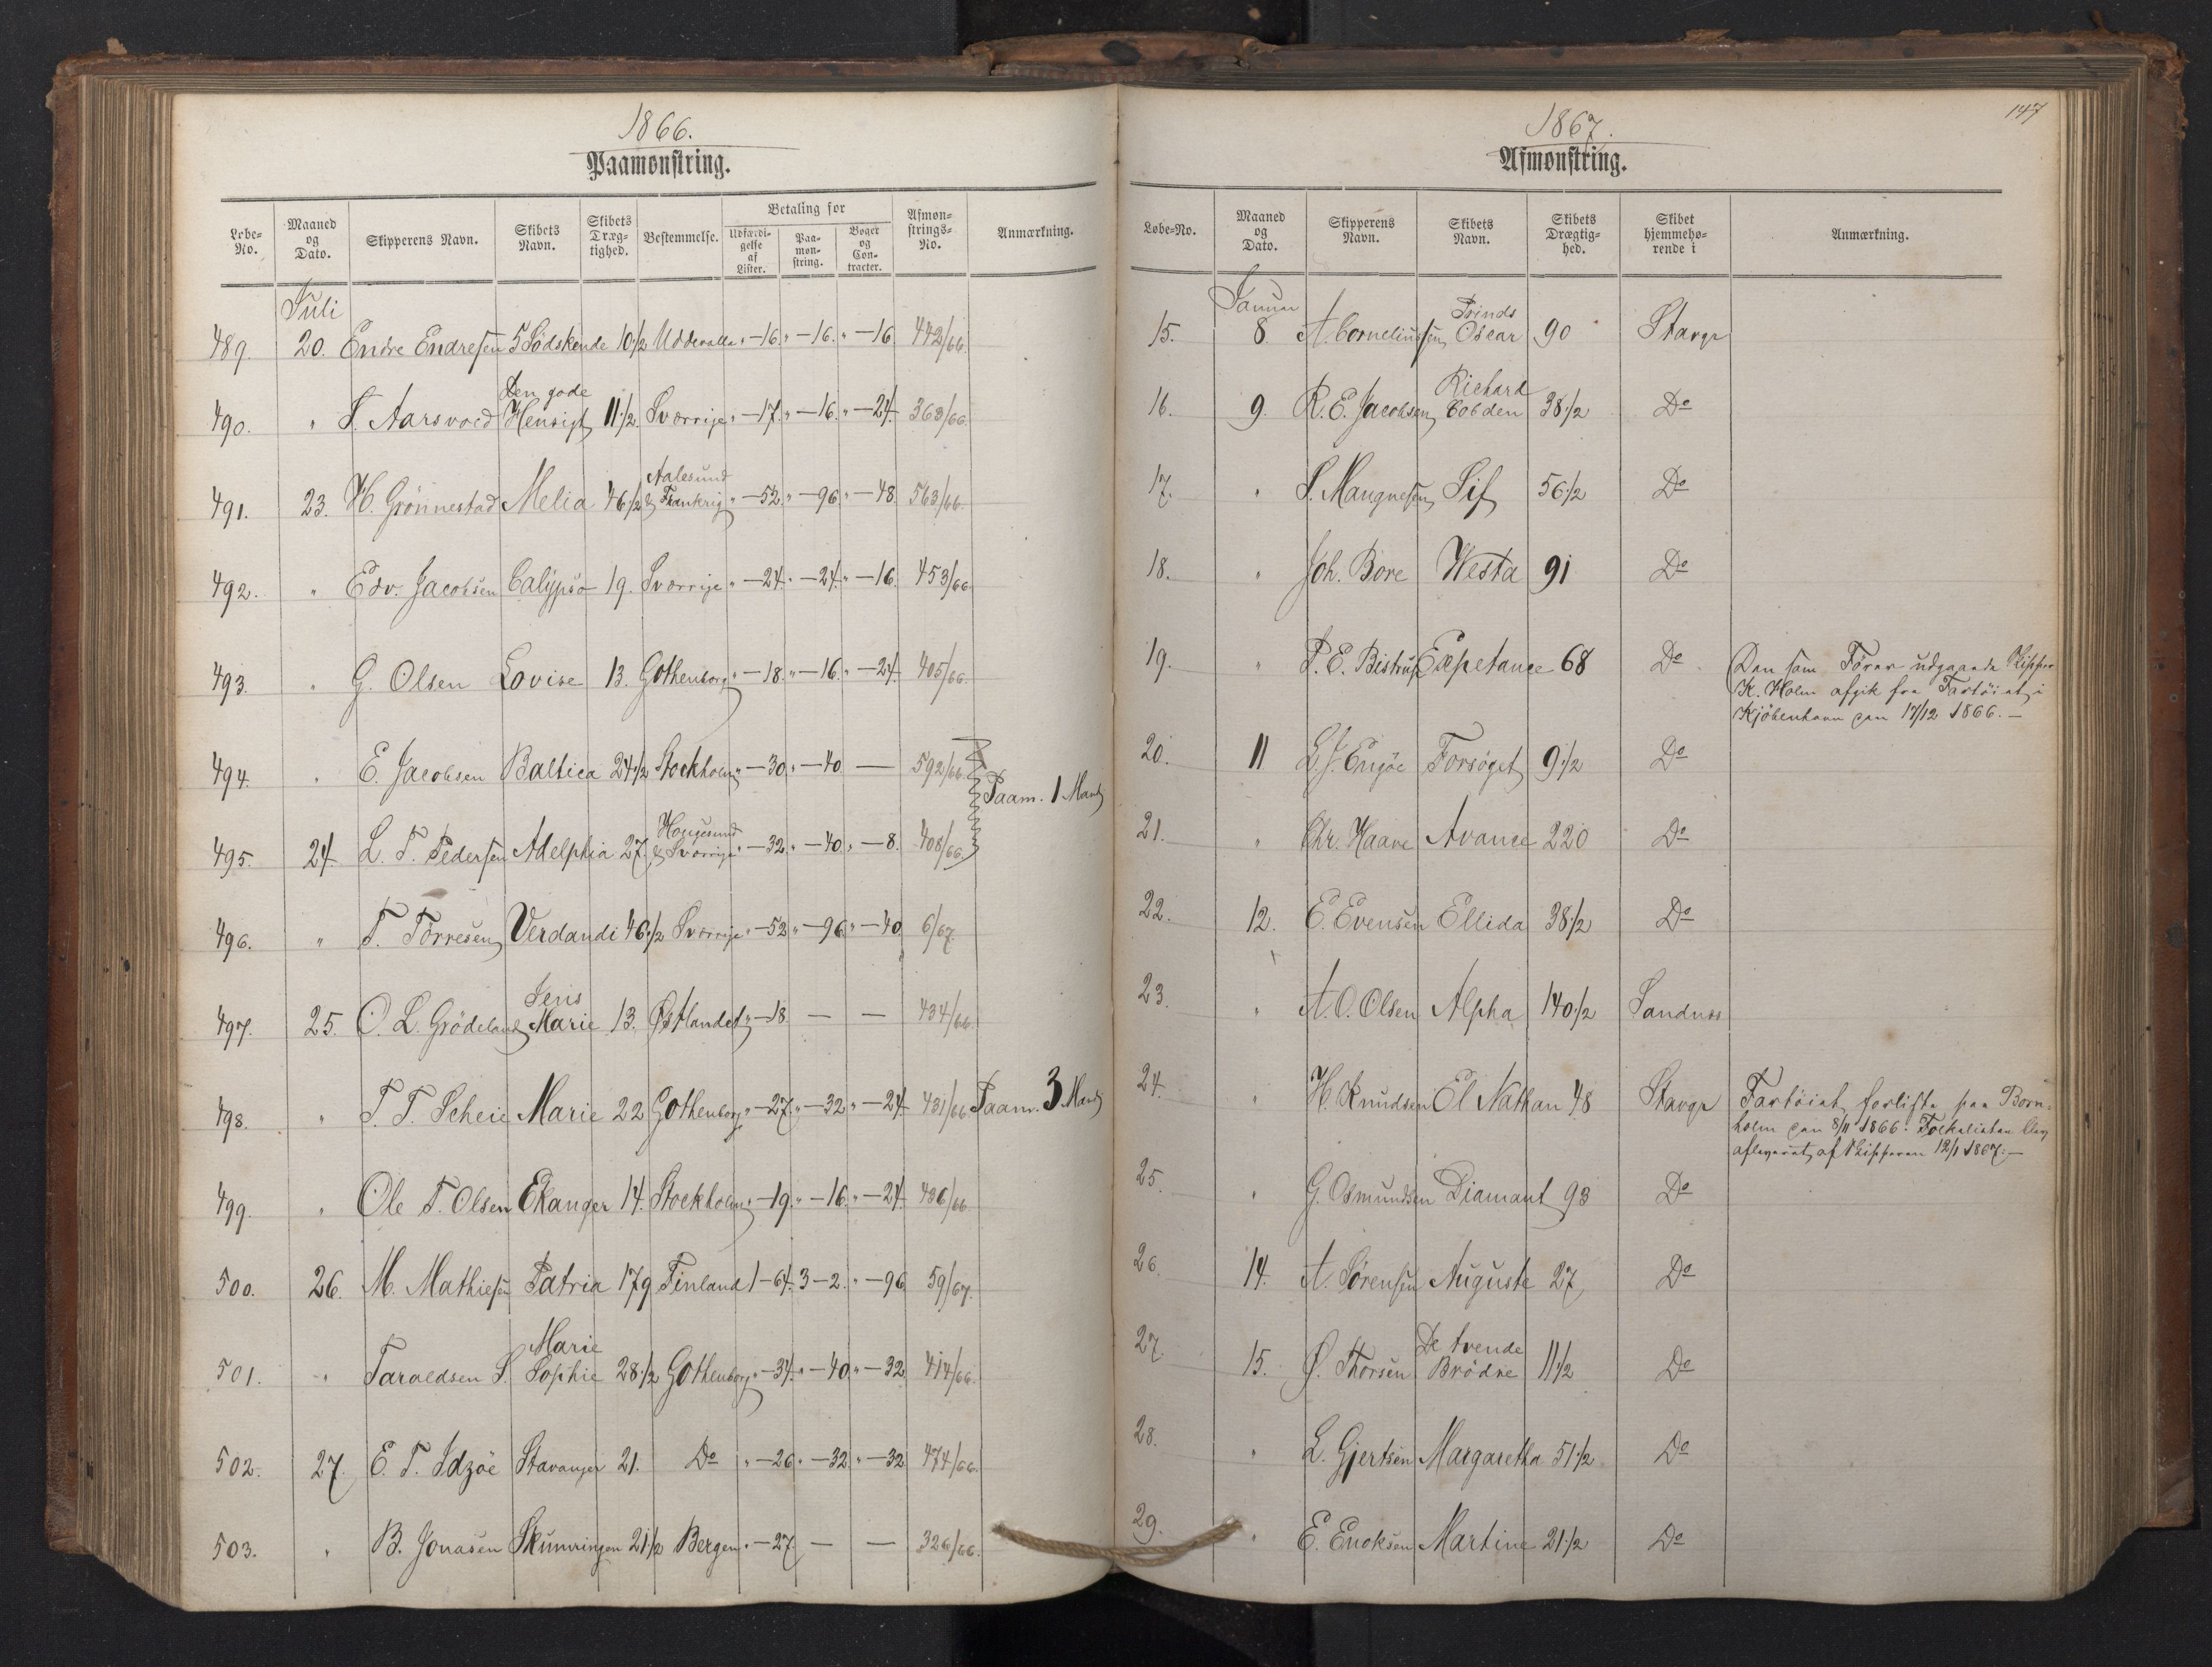 1866.
Paamønstring.
Løbe-No. Maaned og Dato. Skipperens Navn. Skibets Navn. Skibets Dræg-tighed. Bestemmelse. Betaling for Udfærdi-gelse af Lister. Paa-møn-string. Bøger og Con-tracter. Afmøn-strings-No. Anmærkning.
Juli
489. 20. Endre Endresen 5 Sødskende 10 1/2 Uddevalla " - 16. " - 16. " - 16 442/66.
490. " S. Aarsvold Den gode Hensigt 11 1/2 Sverrige " - 17. " - 16. " - 24. 363/66.
491. 23. H. Grönnestad Melia 46 1/2 Aalesund & Frankrig " - 52. " - 96. " - 48 563/66.
492. " Edv. Jacobsen Calypso 19. Sverrige " - 24. " - 24. " - 16. 453/66
493. " G. Olsen Lovise 13. Gothenborg " - 18. " - 16. " - 24. 405/66.
494. " E. Jacobsen Baltica 24 1/2 Stockholm " - 30. " - 40 — 592/66.
Paam. 1 Mand
495. 24. L. T. Pedersen Adelphia 27. Hougesund & Sverrige " - 32. " - 40. " - 8. 408/66.
496. " T. Törresen Verdandi 46 1/2 Sverrige " - 52 " - 96. " - 40. 6/67.
497. 25. O. L. Grödeland Jens Marie 13. Østlandet " - 18. — — 434/66.
498. " T. T. Scheie Marie 22 Gothenborg " - 27. " - 32 " - 24 431/66 Paam. 3 Mand
499. " Ole T. Olsen Ekanger 14. Stockholm " - 19. " - 16. " - 24. 436/66
500. 26. M. Mathiesen Patria 179 Finland 1 - 64. 3 - 2. " - 96 59/67.
501. " Taraldsen S. Marie Sophie 28 1/2 Gothenborg " - 34. " - 40. " - 32 414/66.
502. 27. E. T. Idzöe Stavanger 21. Do " - 26. " - 32. " - 32 474/66.
503. " B. Jonasen Skumringen 21 1/2 Bergen " - 27. — — 326/66.
147
1867.
Afmønstring.
Løbe-No. Maaned og Dato. Skipperens Navn. Skibets Navn. Skibets Drægtig-hed. Skibet hjemmehø-rende i Anmærkning.
Januar
15. 8 A. Corneliussen Prinds Oscar 90 Stavgr
16. 9. R. E. Jacobsen Richard Cobden 38 1/2 Do
17. " S. Maugnesen Sif 56 1/2 Do
18. " Joh. Bore Westa 91 Do
19. " P. E. Bistrup Exspetance 68 Do Den som Förer udgaaende Skipper
K. Holm afgik fra Fartöiet i
Kjöbenhavn den 17/12 1866. —
20. 11 L. J. Engöe Forsöget 9 1/2 Do
21. " Chr. Haave Avance 220 Do
22. 12. E. Evensen Ellida 38 1/2 Do
23. " A. O. Olsen Alpha 140 1/2 Sandnæs
24. " H. Knudsen El Nathan 48 Stavgr Fartöiet forliste paa Born-
holm den 8/11 1866. Folkelisten blev
afleveret af Skipperen 12/1 1867. —
25. " G. Osmundsen Diamant 93 Do
26. 14. A. Sörensen Auguste 27 Do
27. 15. Ø. Thorsen De tvende Brödre 11 1/2 Do
28. " L. Gjertsen Margaretha 51 1/2 Do
29. " E. Enoksen Martine 21 1/2 Do